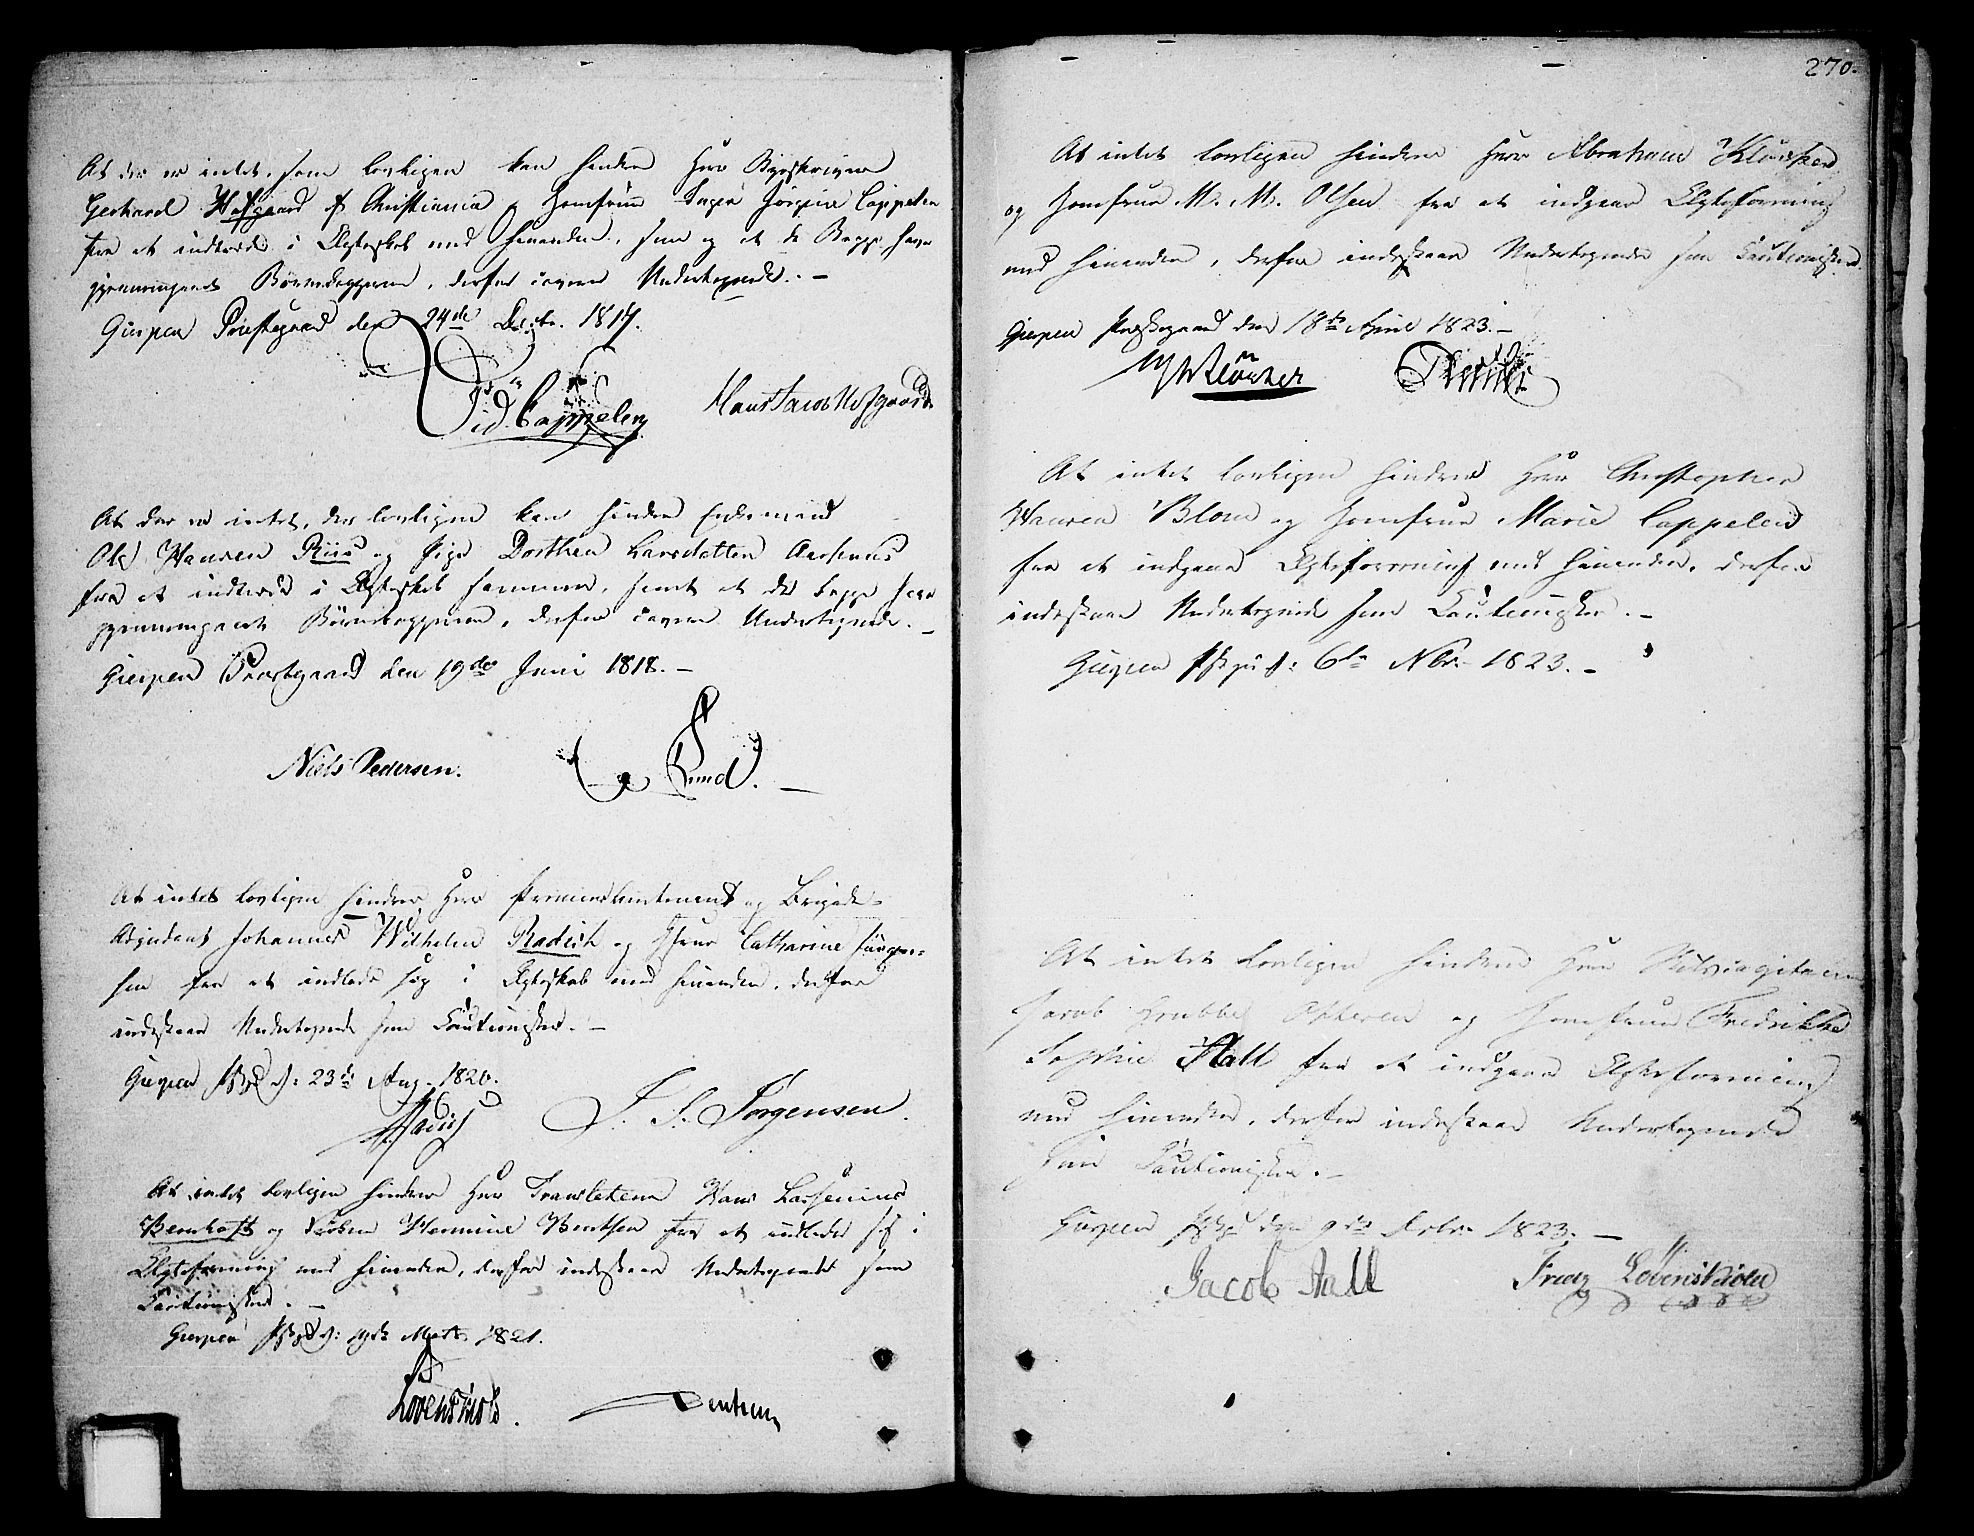 At der er intet, som lovligen kan hindre Herr Byeskriver
Gerhard Hofgaard af Christiania og Jomfrue Inger Jørgine Cappelen
fra at indtræde i Ægteskab med hinanden, som og at de Begge have
gjennemgaaet Børnekopperne, derfor cavere Undertegnede. –
Gierpen Præstegaard den 24de Decbr. 1817.
Did. Cappelen Hans Jacob Hofgaard
At der er intet, der lovligen kan hindre Enkemand
Ole Hansen Riis og Pige Dorthea Larsdatter Aarhuus
fra at indtræde i Ægteskab sammen, samt at de begge have
gjennemgaaet Børnekopperne, derfor cavere Undertegnede. –
Gierpen Præstgaard den 19de Juni 1818. –
Niels Pedersen. Lund. –
At intet lovligen hindrer Herr Premierlieutenant og Brigade-
Adjudant Johannes Wilhelm Radich og Jfrue Cathrine Jørgen-
sen fra at indlade sig i Ægteskab med hinanden, derfor
indestaae Undertegnede som Cautionister. –
Gierpen 23de Aug. 1820.
Radich J. S. Jørgensen.
At intet lovligen hindrer Herr Translateur Hans Lassenius
Bernhoft og Frøken Hermine Bentsen fra at indlade sig i
Ægteforening med hinanden, derfor indestaae Undertegnede som
Cautionister. –
Gierpen Marts 1821.
Løvenskiold. Bentsen
270.
At intet lovligen hindrer Herr Abraham Kløcker
og Jomfrue M. M. Olsen fra at indgaae Ægteforening
med hinanden, derfor indestaae Undertegnede som Cautionister.
Gierpen Præstegaard den 18de April 1823. –
Kløcker
At intet lovligen hindrer Herr Christopher
Hansen Blom og Jomfrue Marie Cappelen
fra at indgaae Ægteforening med hinanden, derfor
indestaae Undertegnede som Cautionister. –
Gierpen 6te Nbr. 1823. –
At intet lovligen hindrer Herr
Jacob Grubbe og Jomfrue Fredrikke
Sophie Aall fra at indgaae Ægteforening
med hinanden, derfor indestaae Undertegnede
som Cautionister. –
Gierpen den 9de 1823. –
Jacob Aall Løvenskiold